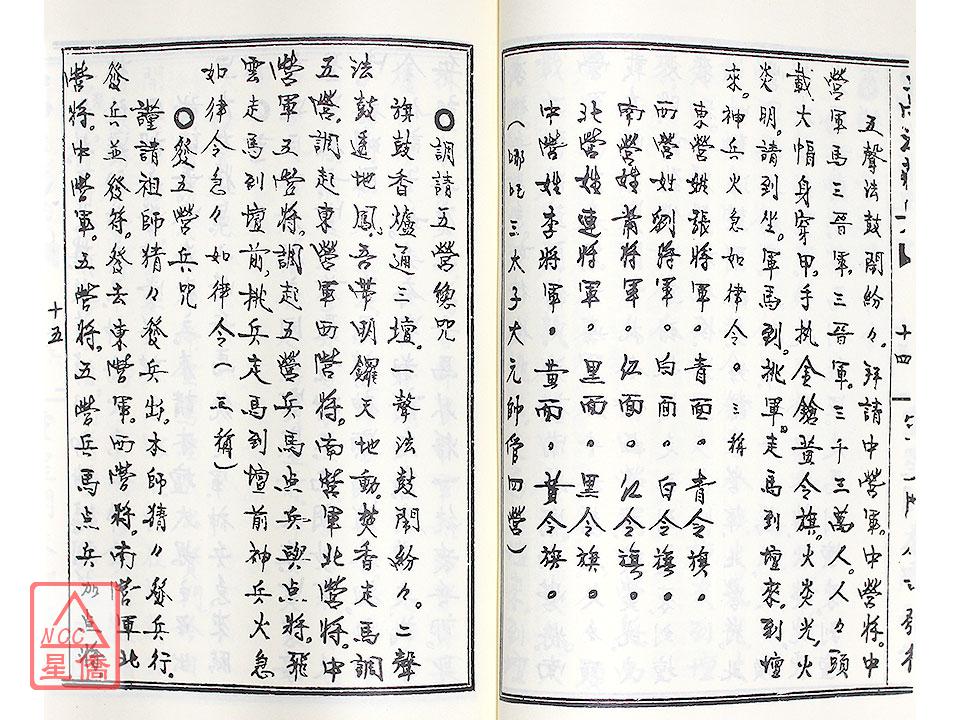 五聲法鼓鬧紛々。拜請中營軍。中營將。中
營軍馬三晋軍。三晋軍。三千三萬人。人々頭
戴大帽身穿甲。手执金鎗黃令旗。火炎光。火
炎明。請到坐。軍馬到。挑軍。走馬到壇來。到壇
來。神兵火急如律令。三稱
東營姓張將軍。青面。青令旗。
西營姓劉將軍。白面。白令旗。
南營姓蕭將軍。红面。红令旗。
北營姓連將軍。黑面。黑令旗。
中營姓李將軍。黃面。黃令旗。
(哪吒三太子大元帥管四營)
十四
調請五營總咒
旗鼓香爐通三壇。一聲法鼓鬧紛々。二聲
法鼓透地鳳。吾帶明鑼天地動。焚香走馬調
五營。調起東營軍西營將。南營軍北營將。中
營軍五營將。調起五營兵馬点兵與点將。飛
雲走馬到壇前。挑兵走馬到壇前神兵火急
如律令急々如律令(三稱)
發五營兵咒
謹請祖師猜々發兵出。本師猜々發兵行。
發兵並發符。發去東營軍。西營將。南營軍北
營將。中營軍。五營將。五營兵馬点兵加点將。
十五
NCC
星僑